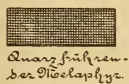 Quarz führen-
der Melaphyr.